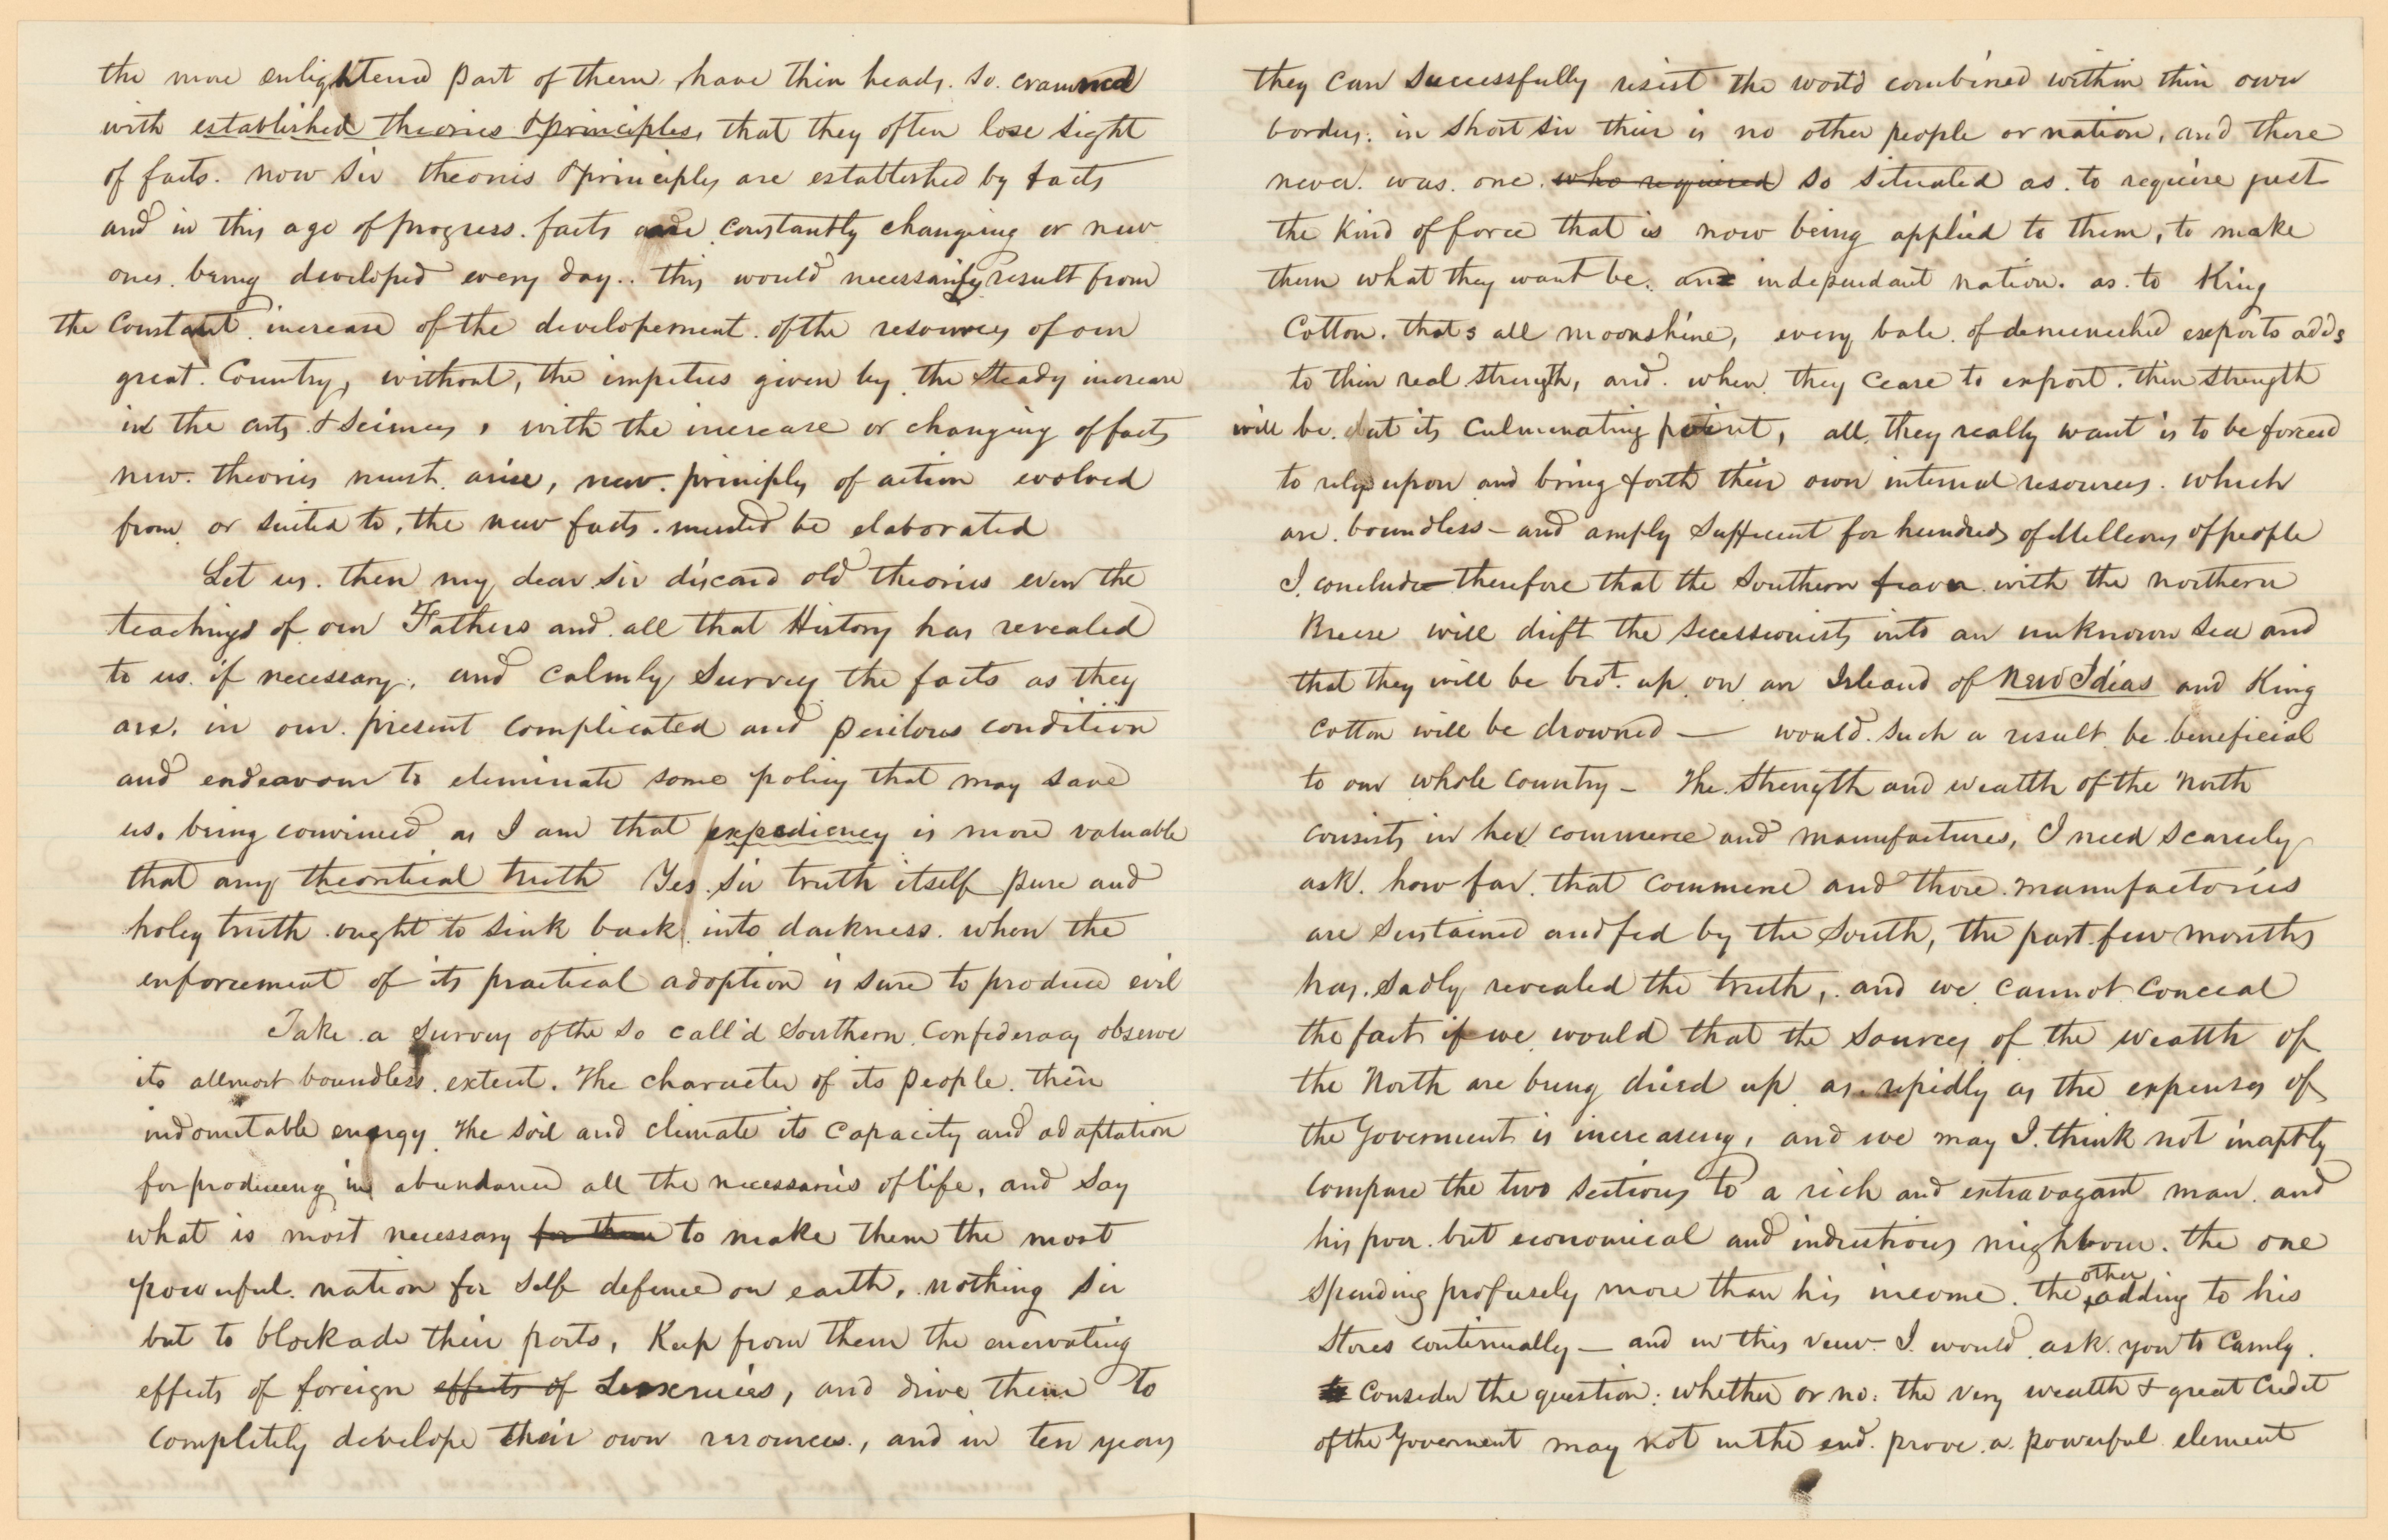 the more enlightened part of them, have thier heads. so. crammed
with established theories & principles, that they often lose sight
of facts. now Sir theories & principles are established by facts
and in this age of progress. facts are constantly changeing or new
ones. being developed every day.. this would necessarily result from
the constant increase of the developement. of the resources of our
great. Country, without, the impetus given by the steady increase
in the arts & sciences, with the increase or changing of facts
new. theories must. arise, new. priniples of action evolved
from or suited to, the new facts. must be elaborated
Let us. then my dear Sir discard old theories even the
teachings of our Fathers and all that History has revealed
to us. if necessary. and calmly survey the facts as they
are. in our. present complicated and perilous condition
and endeavour to eleminate some policy that may save
us. being convinced as I am that expediency is more valuable
that any theoritical truth Yes. Sir truth itself pure and
holey truth ought to sink back into darkness. when the
enforcement of its practical adoption is sure to produce evil
Take a survey of the so call'd Southern Confederacy observe
its allmost boundless extent. The character of its people. their
indomitable energy. The soil and climate its capacity and adaptation
for produceing in abundance all the necessaries of life, and say
what is most necessary for them to make them the most
powerful. nation for self defence on earth, nothing Sir
but to blockade their ports, Keep from them the enervating
effects of foreign effects of Luxeruies, and drive them to
completely develope their own resources., and in ten years
they can successfully resist the world combined within thier own
borders. in short sir their is no other people or nation, and there
never. was. one. who required so situated as. to require just
the kind of force that is now being applied to them, to make
them what they want be. an independant nation. as. to King
Cotton. thats all moonshine, every bale. of demineshed exports adds
to thier real strength, and when they cease to export. thier strength
will be. at its culmenating point, all. they really want is to be forced
to rely upon and bring forth their own internal resources. which
are. boundless – and amply sufficent for hundreds of Milleons of people
I conclude therefore that the Southern with the northern
Breese will drift the secessionists into an unknown sea and
that they will be brot. up. on an Island of New Ideas and King
cotton will be drowned — would such a result be beneficial
to our whole country – The strength and wealth of the North
consists in her commerce and manufactures, I need scarcely
ask. how far. that commerce and those manufactories
are sustained and fed by the South, the past few months
has. sadly revealed the truth, and we cannot conceal
the fact if we would that the sources of the wealth of
the North are being dried up as. rapidly as the expenses of
the Goverment is increaseing, and we may I. think not inaptly
compare the two sections to a rich and extravagant man. and
his poor. but economical and industrious neighbour. the one
spending profusely more than his income. the other adding to his
stores continually — and in this view I would ask. you to camly
to consider the question: whether or no: the very wealth & great credit
of the Goverment may not in the end. prove. a powerful element